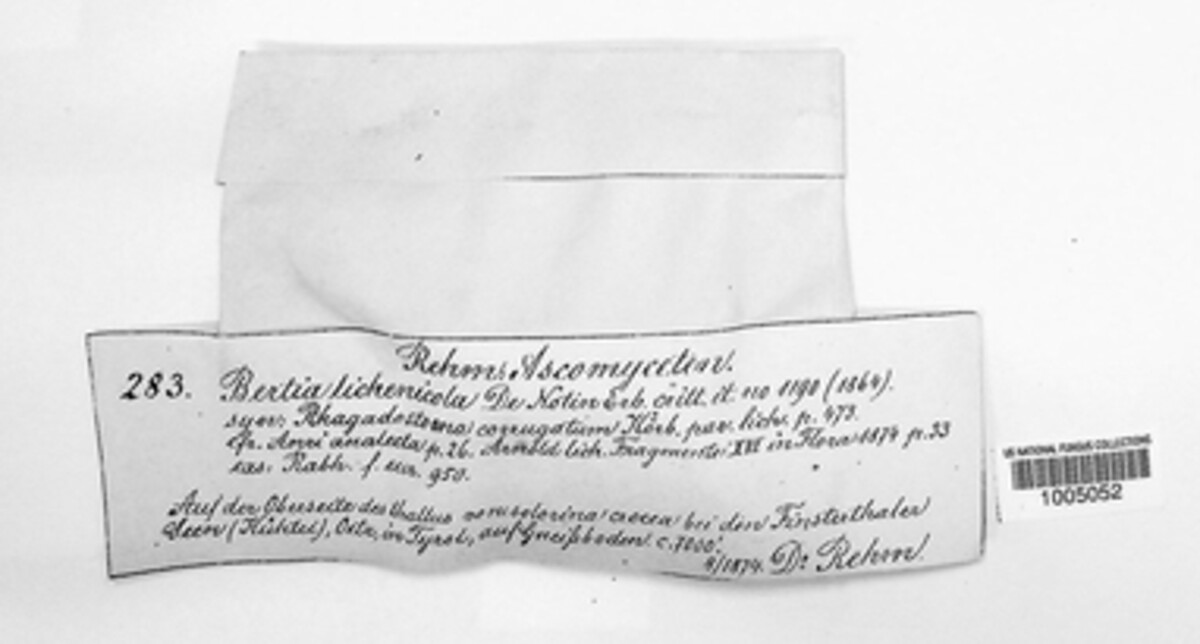 Rehm: Ascomyceten.
283. Bertia lichenicola De Notin Erb. critt. it. no 1190 (1864).
syn: Rhagadostoma corrugatum Körb. par. lich. p. 473.
cfr. Anzi analecta p. 26. Arnold lich. Fragmente XVI in Flora 1874 p.
exs. Rabh. f. eur. 950.
Auf der Oberseite des thallus von solorina crocea bei den Finsterthaler
Seen (Kühtei), Oetz, in Tyrol, auf Gneißboden. c. 7000'.
/1874. Dr Rehm.
US NATIONAL FUNGUS COLLECTIONS
1005052